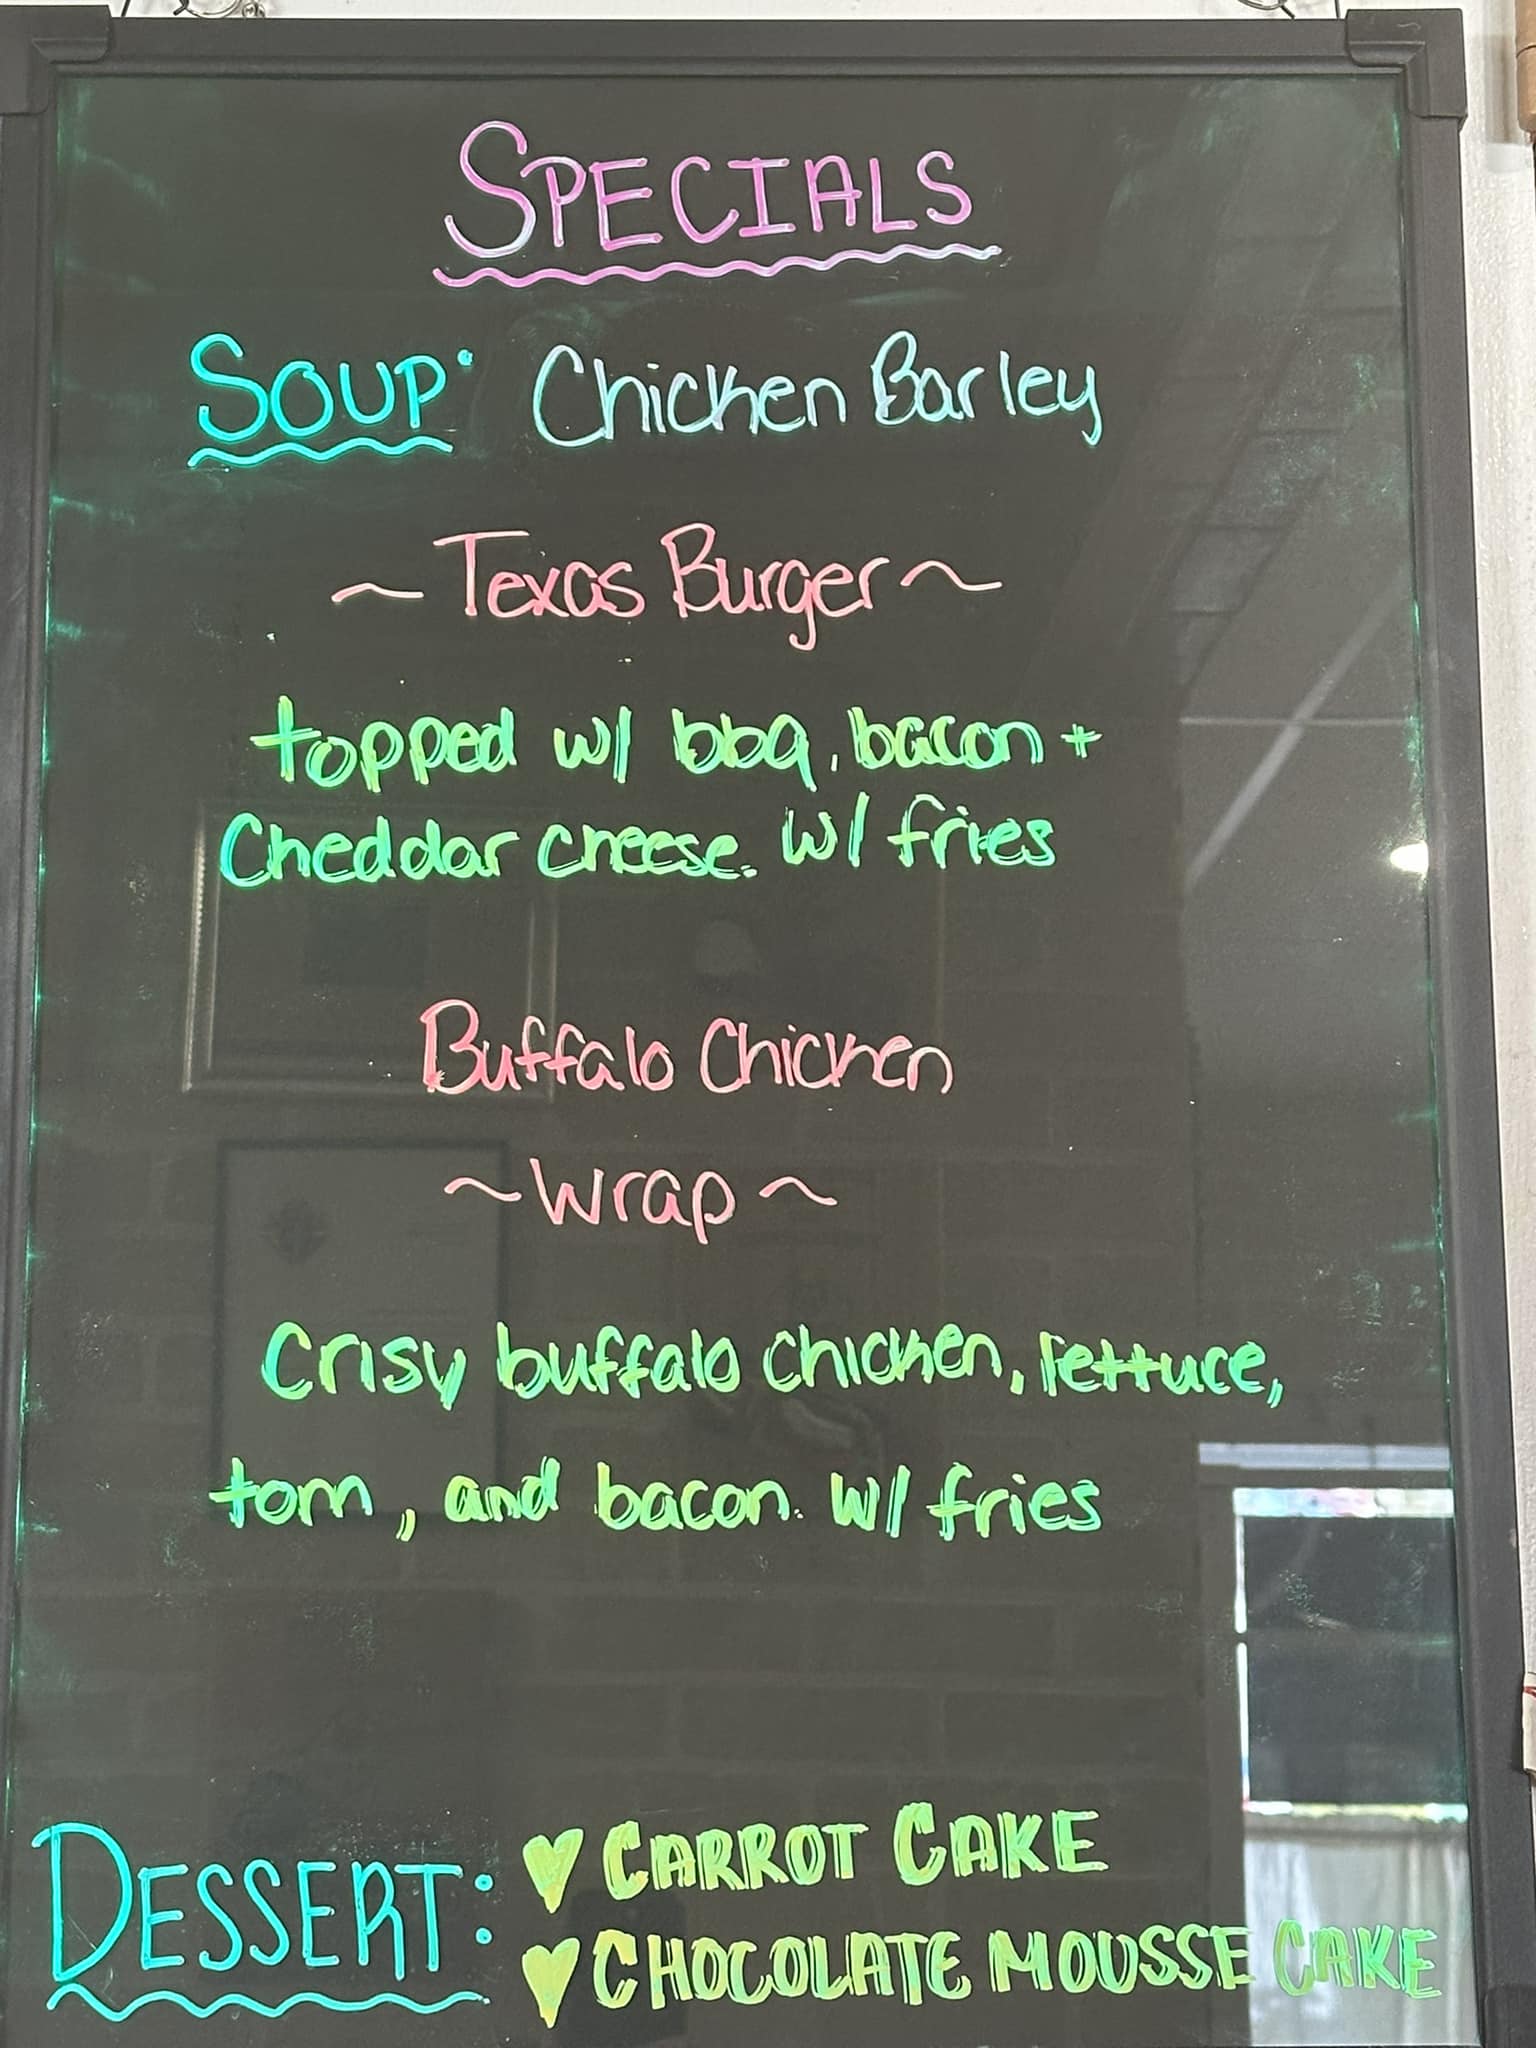 SPECIALS
SOUP: Chicken Barley
~ Texas Burger ~
topped w/ bbq, bacon +
Cheddar cheese. w/ fries
Buffalo Chicken
~ Wrap ~
Crisy buffalo chicken, lettuce,
tom, and bacon. w/ fries
DESSERT: ♥ CARROT CAKE
♥ CHOCOLATE MOUSSE CAKE